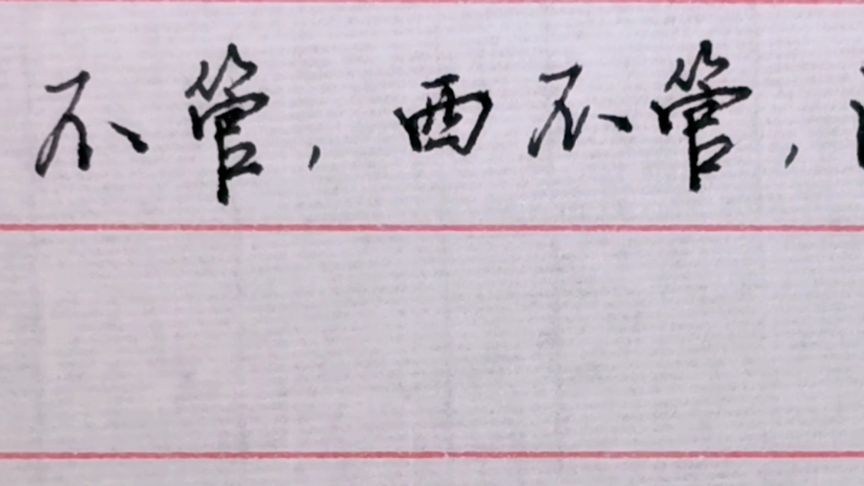 不管，西不管，